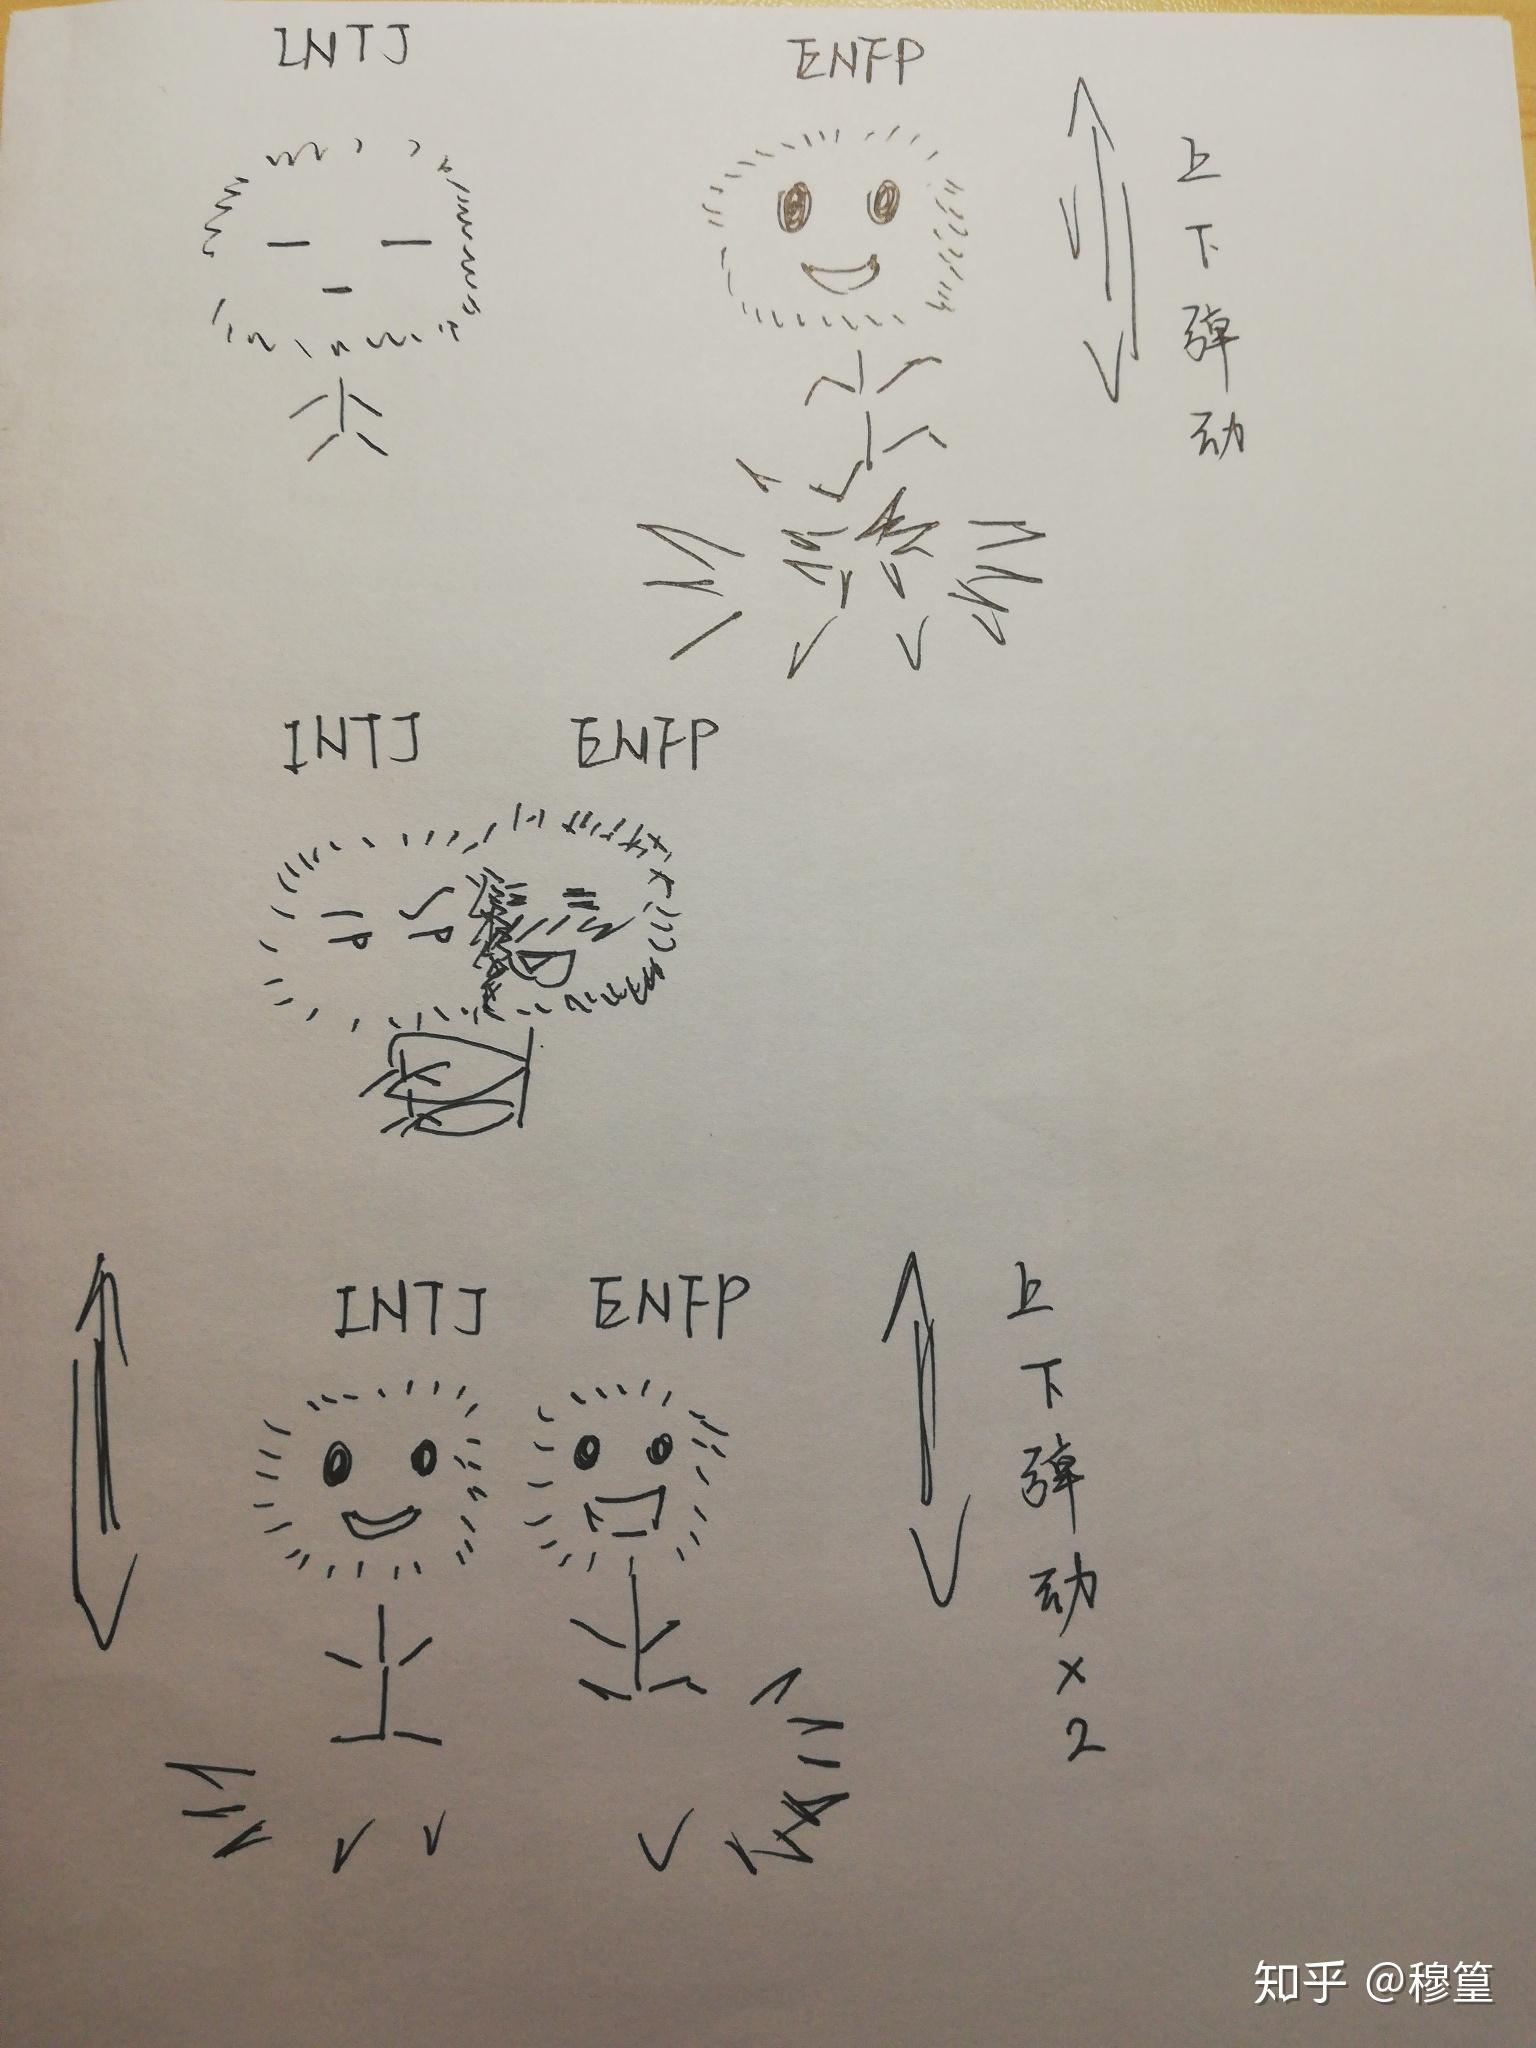 INTJ
ENFP
上下弹动
INTJ
ENFP
INTJ
ENFP
上下弹动×2
知乎 @穆篁